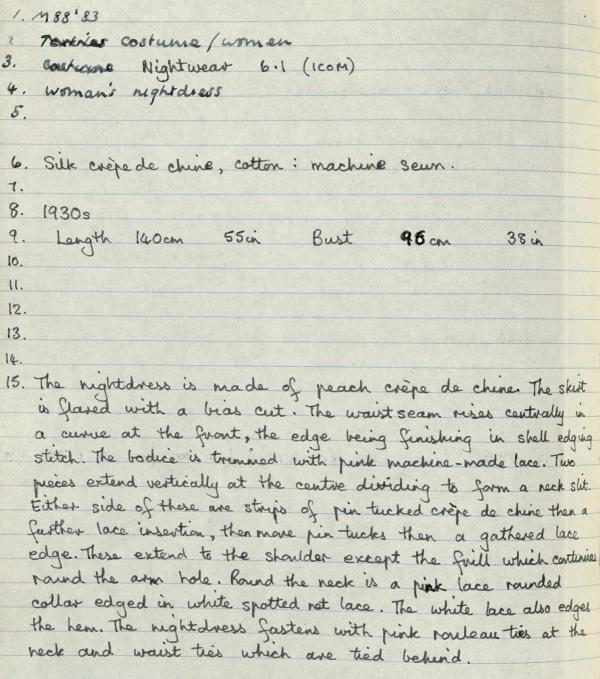 1. M88'83
2 Textiles costume/women
3. costume Nightwear 6.1 (ICOM)
4. woman's nightdress
5.
6. Silk crêpe de chine, cotton : machine sewn.
7.
8. 1930s
9. Length 140cm 55in Bust 96cm 38in
10.
11.
12.
13.
14.
15. The nightdress is made of peach crêpe de chine. The skirt
is flared with a bias cut. The waist seam rises centrally in
a curve at the front, the edge being finishing in shell edging
stitch. The bodice is trimmed with pink machine-made lace. Two
pieces extend vertically at the centre dividing to form a neck slit.
Either side of these are strips of pin tucked crêpe de chine then a
further lace insertion, then more pin tucks then a gathered lace
edge. These extend to the shoulder except the frill which continues
round the arm hole. Round the neck is a pink lace rounded
collar edged in white spotted net lace. The white lace also edges
the hem. The nightdress fastens with pink rouleau ties at the
neck and waist ties which are tied behind.